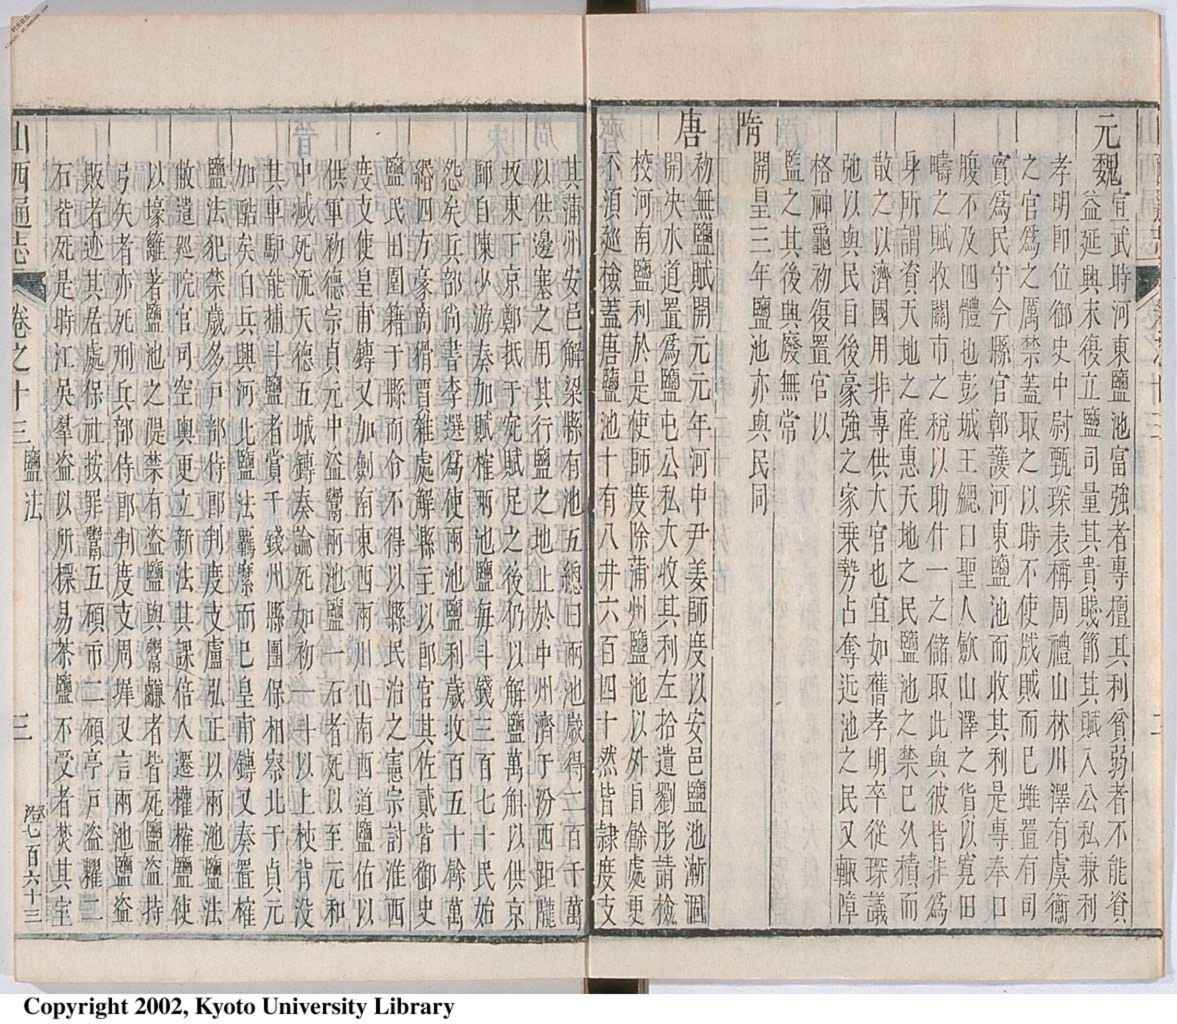 元魏
宣武時河東鹽池富強者專擅其利貧弱者不能資
益延興末復立鹽司量其貴賤節其賦入公私兼利
孝明即位御史中尉甄琛表稱周禮山林川澤有虞衡
之官爲之厲禁蓋取之以時不使戕賊而已雖置有司
實爲民守今縣官鄣護河東鹽池而收其利是專奉口
腹不及四體也彭城王勰曰聖人歛山澤之貨以寬田
疇之賦收關市之稅以助什一之儲取此與彼皆非爲
身所謂資天地之産惠天地之民鹽池之禁已久積而
散之以濟國用非專供大官也宜如舊孝明卒從琛議
弛以與民自後豪強之家乗勢占奪近池之民又輒障
格神龜初復置官以
監之其後興廢無常
隋
開皇三年鹽池亦與民同
唐
初無鹽賦開元元年河中尹姜師度以安邑鹽池漸涸
開決水道置爲鹽屯公私大收其利左拾遺劉彤請檢
校河南鹽利於是使師度除蒲州鹽池以外自餘處更
不須巡檢蓋唐鹽池十有八井六百四十然皆隷度支
其蒲州安邑解梁縣有池五總曰兩池歲得二百千萬
以供邊塞之用其行鹽之地止於中州濟于汾西距隴
坂東于京鄭抵于宛賦足之後仍以解鹽萬斛以供京
師自陳少游奏加賦榷兩池鹽每斗錢三百七十民始
怨矣兵部尚書李選爲使兩池鹽利歲收百五十餘萬
緡四方豪商猾賈雜處解縣主以郎官其佐貳皆御史
鹽民田園籍于縣而令不得以縣民治之憲宗討淮西
度支使皇甫鏄又加劍南東西兩川山南西道鹽佑以
供軍初德宗貞元中盜鬻兩池鹽一石者死以至元和
中減死流天德五城鏄奏論死如初一斗以上杖背没
其車馿能捕斗鹽者賞千錢州縣團保相察北于貞元
加酷矣自兵興河北鹽法羈縻而已皇甫鏄又奏置榷
鹽法犯禁歲多戸部侍郎判度支盧弘正以兩池鹽法
敝遣廵院官司空輿更立新法其課倍入遷權榷鹽使
以壕籬著鹽池之隄禁有盜鹽與鬻鹻者皆死鹽盜持
弓矢者亦死刑兵部侍郎判度支周墀又言兩池鹽盜
販者迹其居處保社按罪鬻五碩市二碩亭戸盜糶二
石皆死是時江吳羣盜以所摽易茶鹽不受者焚其室
山西通志
卷之十三
鹽法
三
七百六十三